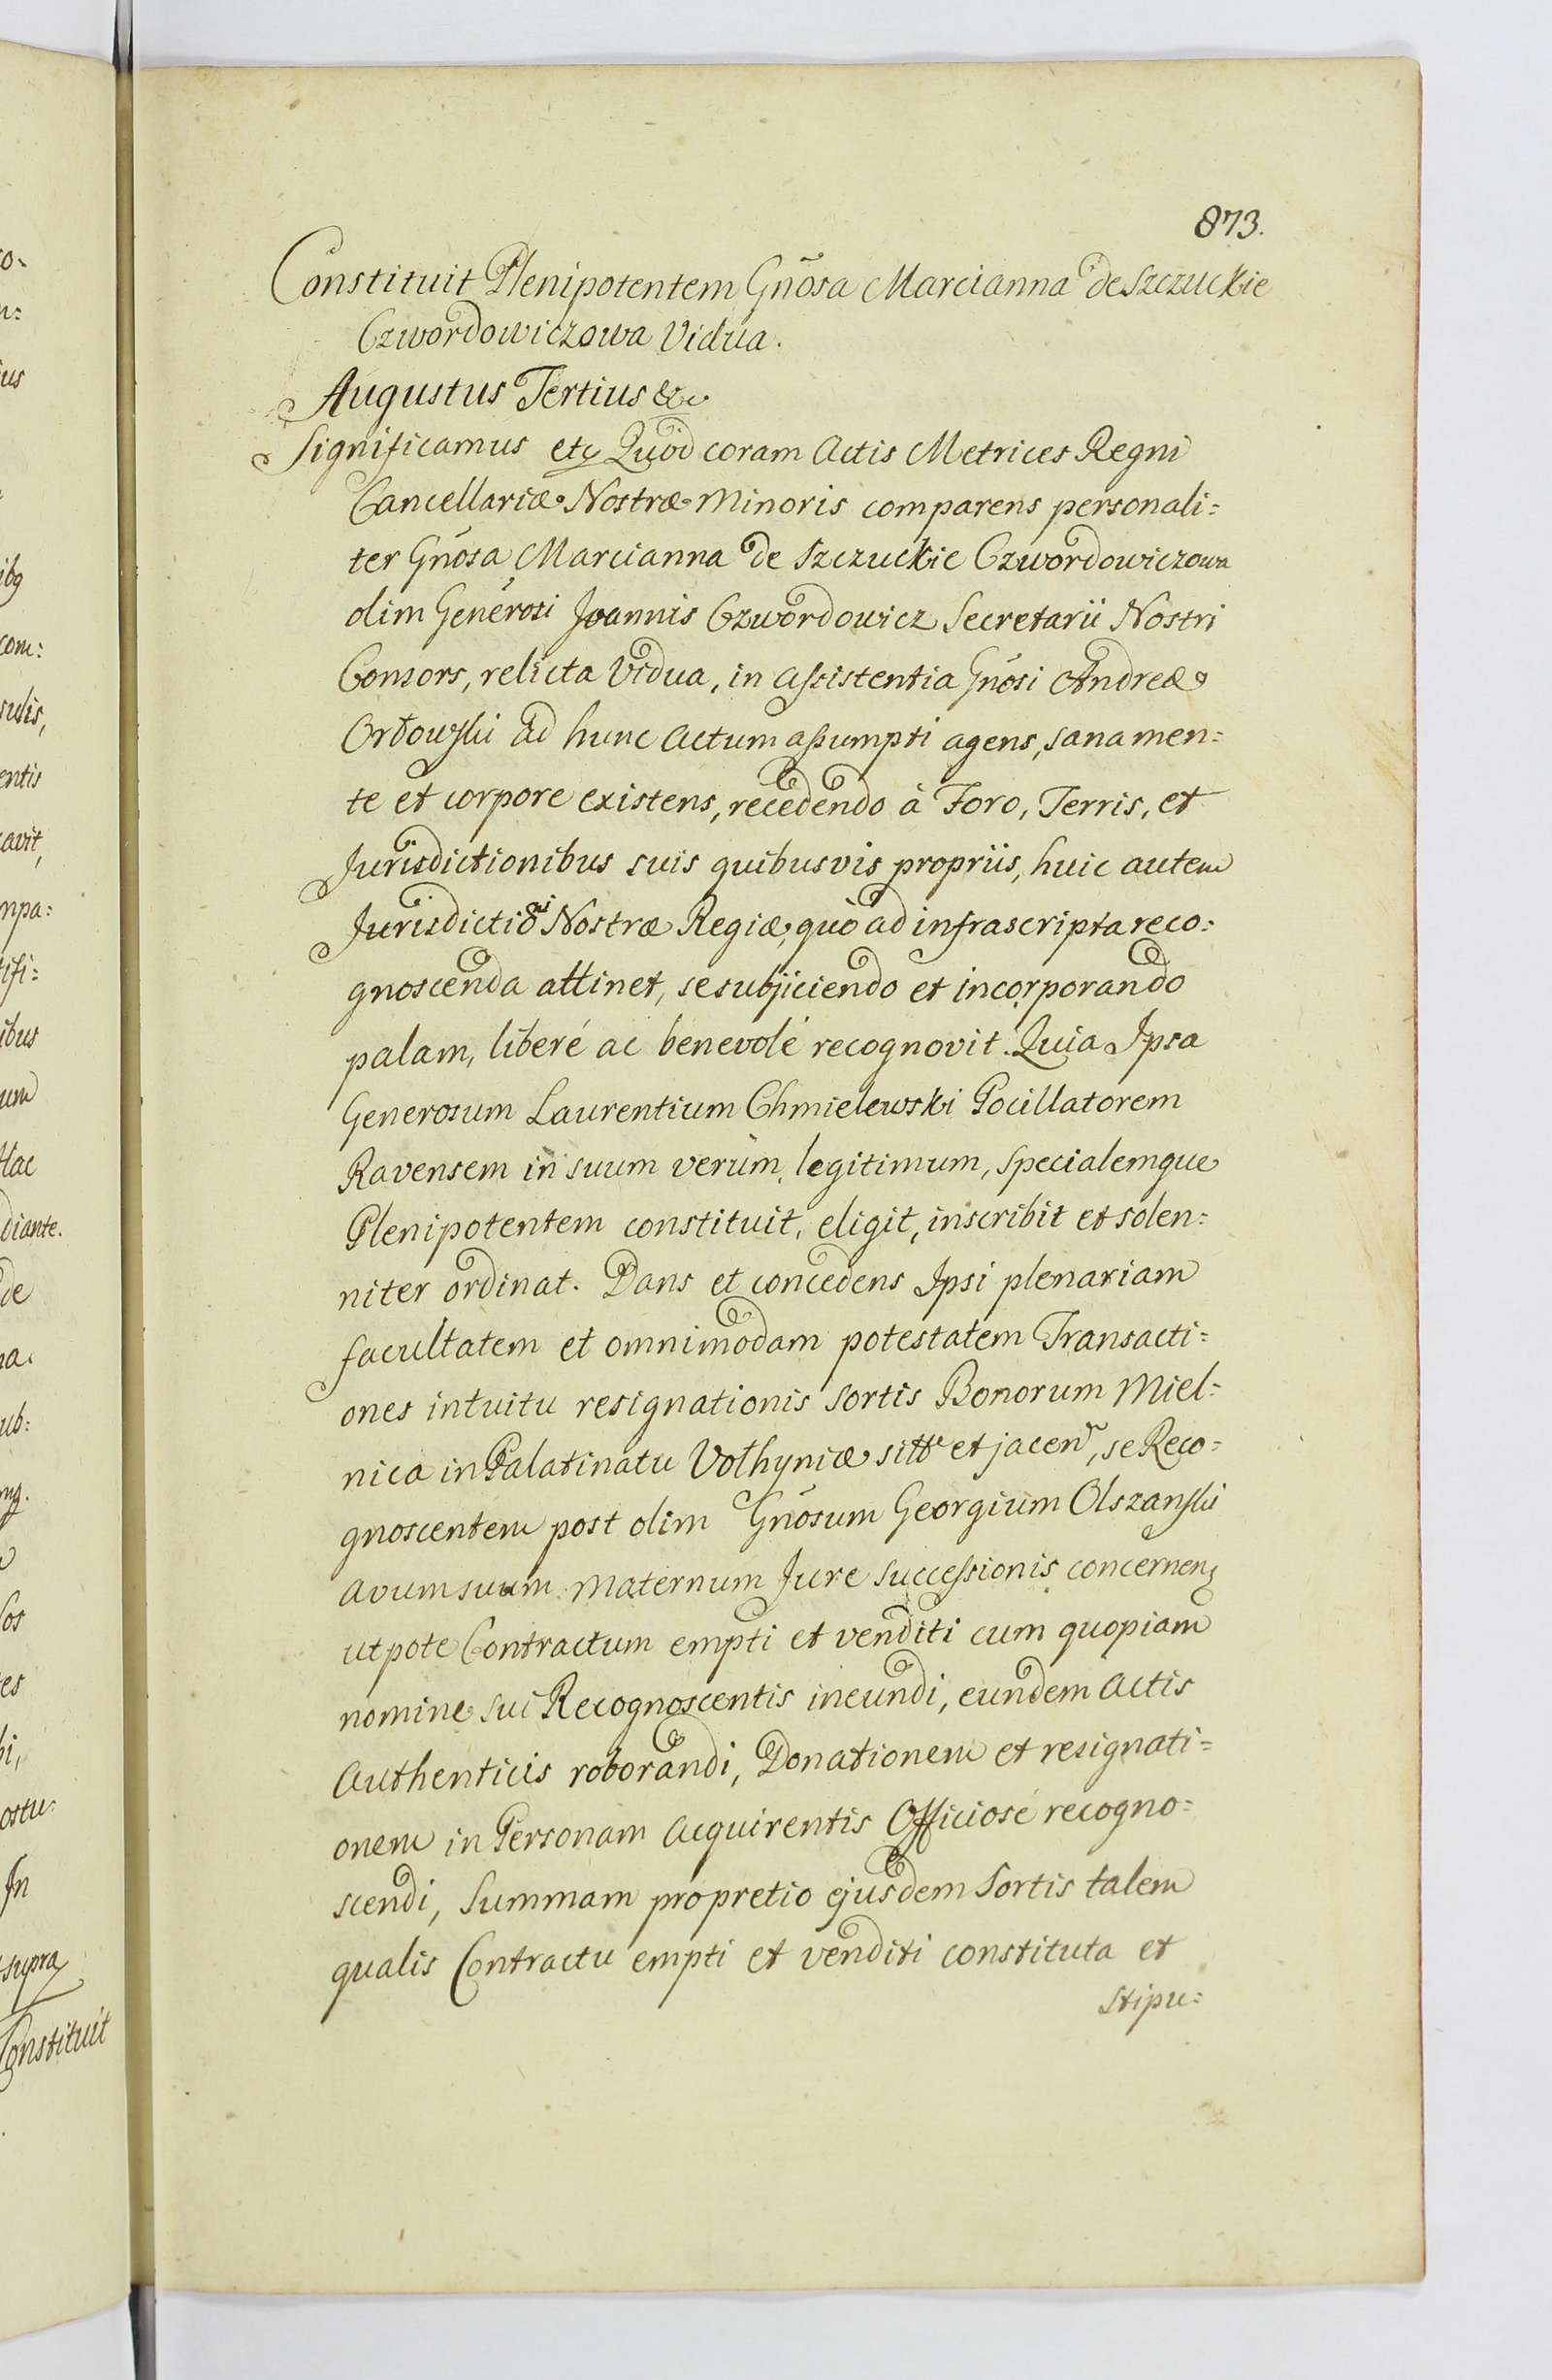 873.
Constituit Plenipotentem Gnõsa Marcianna de Szczuckie
Czwordowiczowa Vidua.
Augustus Tertius &c
Significamus etc Quod coram Actis Metrices Regni
Cancellariæ Nostræ Minoris comparens personali=
ter Gnõsa Marcianna de Szczuckie Czwordowiczowa
olim Generosi Joannis Czwordowicz Secretarii Nostri
Consors, relicta Vidua, in assistentia Gnõsi Andreæ
Orłowski ad hunc Actum assumpti agens, sana men=
te et corpore existens, recedendo à Foro, Terris, et
Jurisdictionibus suis quibusvis propriis, huic autem
Jurisdictioni Nostræ Regiæ, quò ad infrascripta reco=
gnoscenda attinet, se subjiciendo et incorporando
palam, liberé ac benevolé recognovit. Quia Ipsa
Generosum Laurentium Chmielewski Pocillatorem
Ravensem in suum verum, legitimum, specialemque
Plenipotentem constituit, eligit, inscribit et solen=
niter ordinat. Dans et concedens Ipsi plenariam
facultatem et omnimodam potestatem Transacti=
ones intuitu resignationis Sortis Bonorum Miel=
nica in Palatinatu Volhyniæ sitt et jacen, se Reco=
gnoscentem post olim Gnõsum Georgium Olszanski
Avum suum Maternum Jure Successionis concernen
utpote Contractum empti et venditi cum quopiam
nomine sui Recognoscentis ineundi, eundem Actis
Authenticis roborandi, Donationem et resignati=
onem in Personam Acquirentis Officiosé recogno=
scendi, Summam pro pretio ejusdem Sortis talem
qualis Contractu empti et venditi constituta et
Stipu=
ibq
com:
entis
avit,
ibus
um
Hac
diante.
de
ub:
es
ostu:
In
supra
Constituit